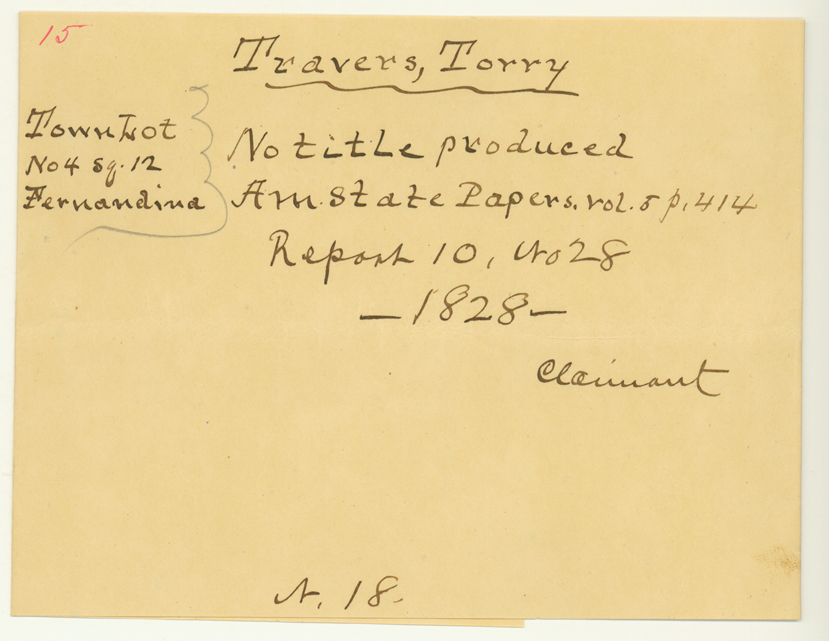 15
Travers, Torry
Town Lot
No 4 Sq. 12
Fernandina
No title produced
Am. State Papers. vol. 5 p. 414
Report 10, No 28
- 1828 -
Claimant
N. 18.